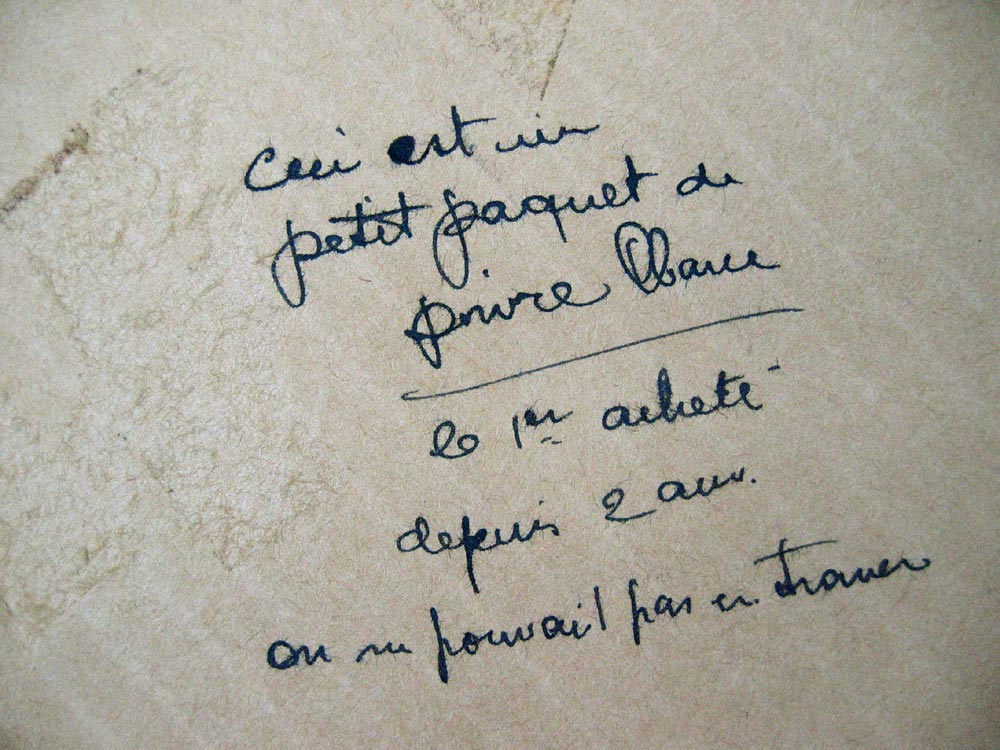 Ceci est un
petit paquet de
poivre blanc
le 1er acheté
depuis 2 ans.
on ne pouvait pas en trouver